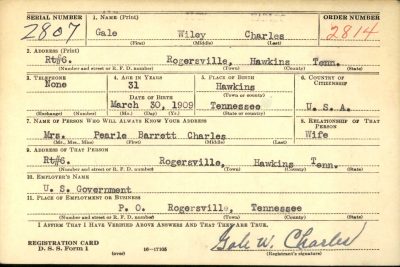 SERIAL NUMBER 1. NAME (Print) ORDER NUMBER
2807 Gale Wiley Charles 2814
(First) (Middle) (Last)
2. ADDRESS (Print)
Rt#6. Rogersville, Hawkins Tenn.
(Number and street or R. F. D. number) (Town) (County) (State)
3. TELEPHONE 4. AGE IN YEARS 5. PLACE OF BIRTH 6. COUNTRY OF CITIZENSHIP
None 31 Hawkins
(Town or county)
DATE OF BIRTH
March 30, 1909 Tennessee U. S. A.
(Exchange) (Number) (Mo.) (Day) (Yr.) (State or country)
7. NAME OF PERSON WHO WILL ALWAYS KNOW YOUR ADDRESS 8. RELATIONSHIP OF THAT PERSON
Mrs. Pearle Barrett Charles Wife
(Mr., Mrs., Miss) (First) (Middle) (Last)
9. ADDRESS OF THAT PERSON
Rt#6. Rogersville, Hawkins Tenn.
(Number and street or R. F. D. number) (Town) (County) (State)
10. EMPLOYER'S NAME
U. S. Government
11. PLACE OF EMPLOYMENT OR BUSINESS
P. O. Rogersville, Tennessee
(Number and street or R. F. D. number) (Town) (County) (State)
I AFFIRM THAT I HAVE VERIFIED ABOVE ANSWERS AND THAT THEY ARE TRUE.
Gale W. Charles
REGISTRATION CARD
D. S. S. Form 1 (over) 16—17105 (Registrant's signature)